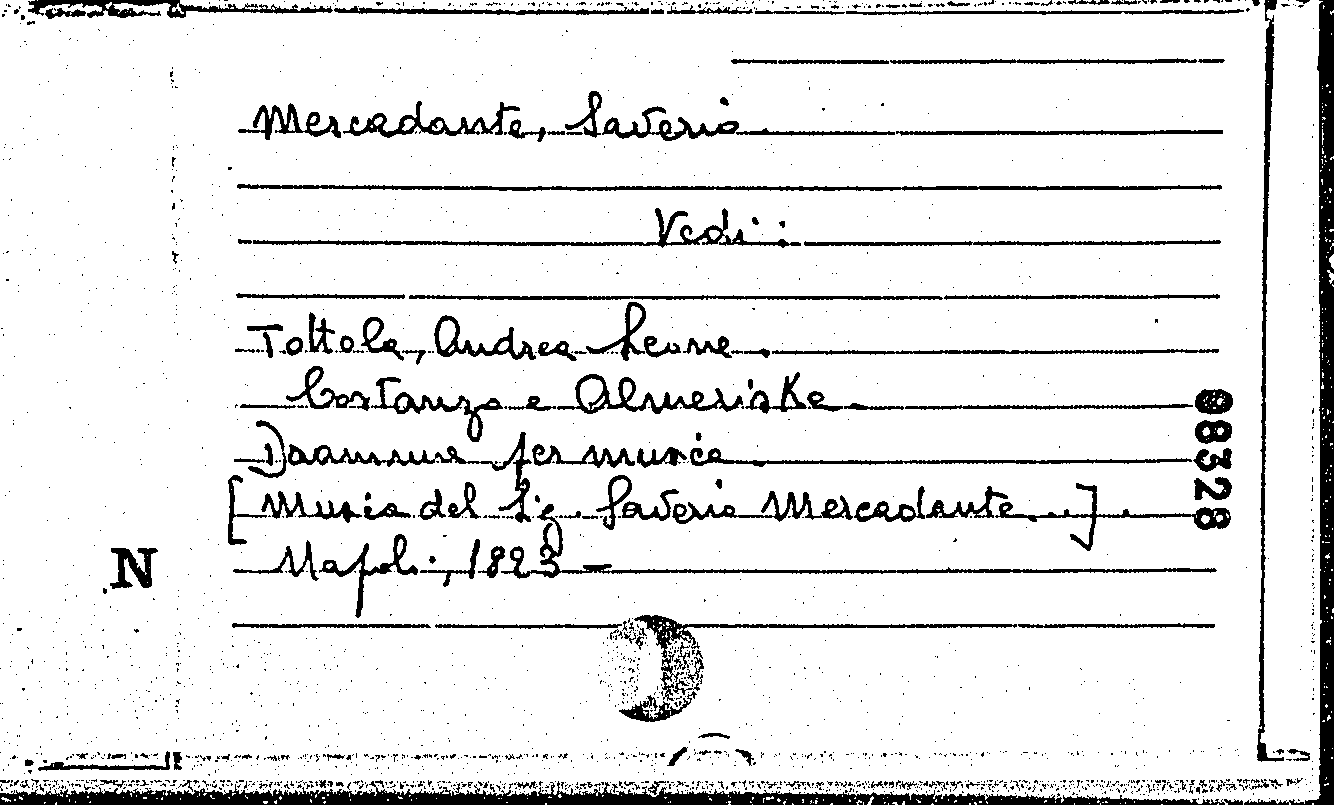 Mercadante, Saverio.
Vedi:
Tottola, Andrea Leone.
Costanzo e Almeriska.
Dramma per musica.
[Musica del Sig. Saverio Mercadante...].
Napoli, 1823 -
N
08328